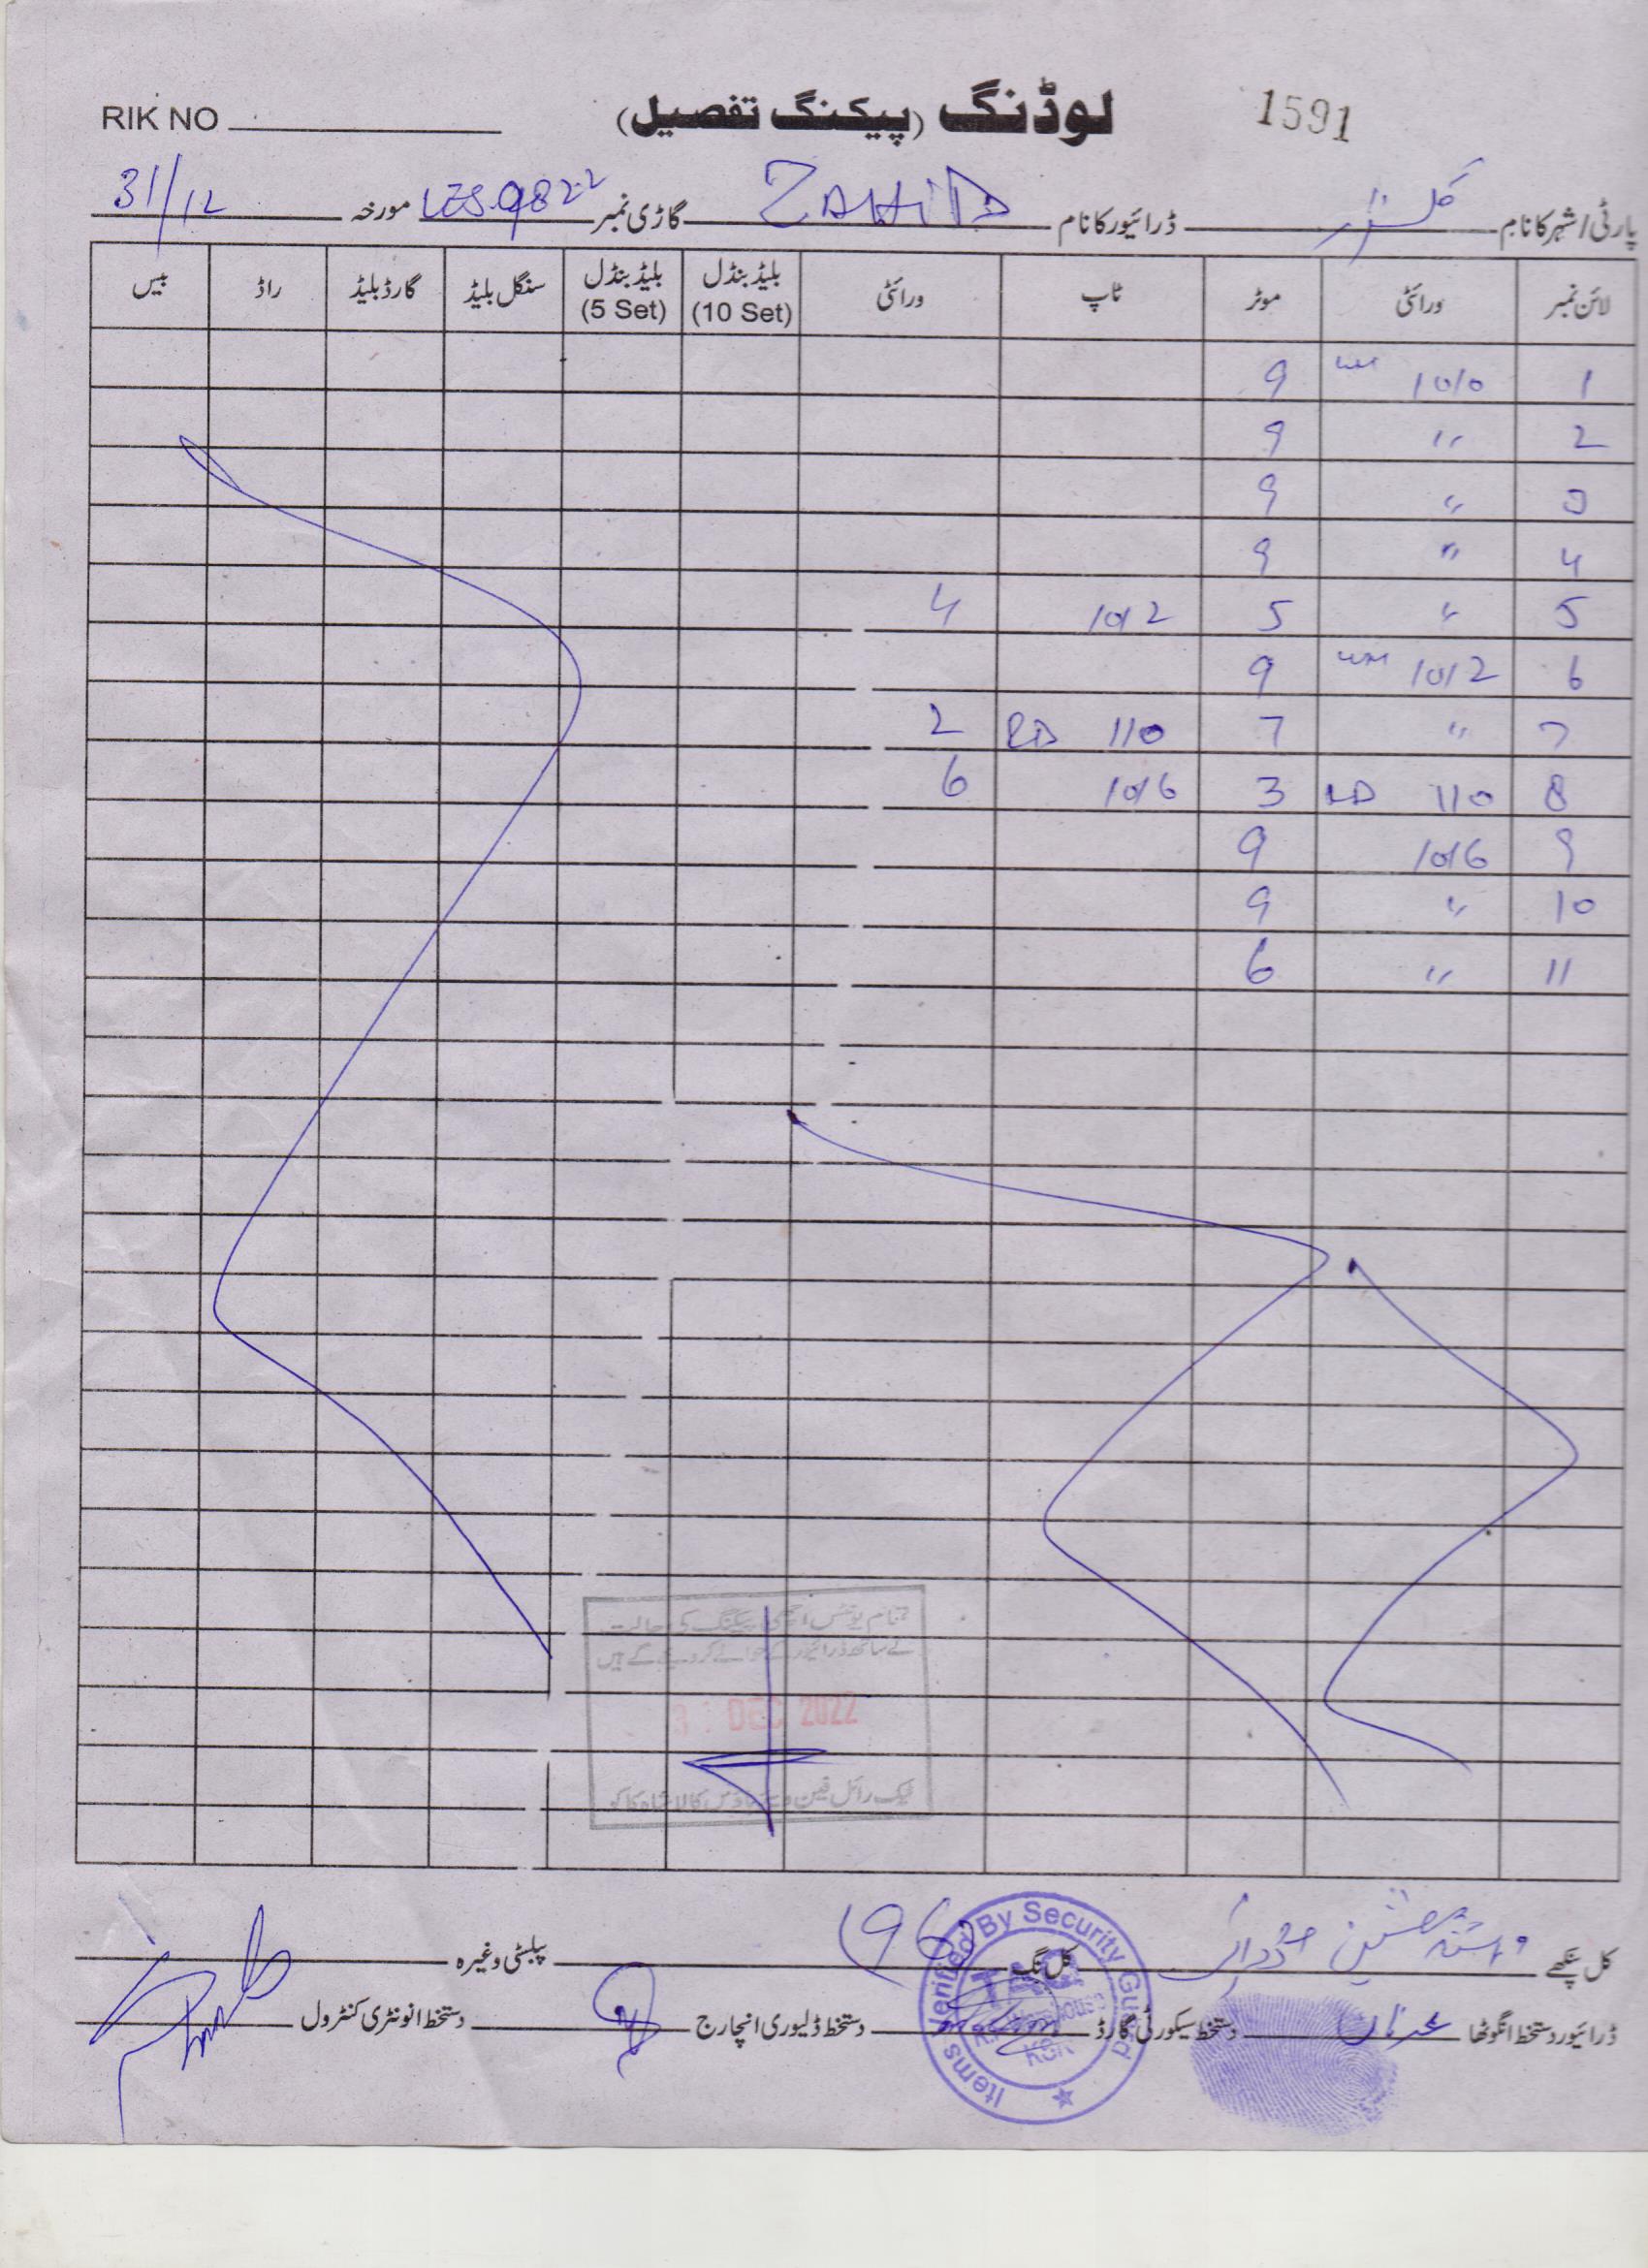 RIK NO لوڈنگ (پیکنگ تفصیل) 1591
پارٹی/شہر کا نام ڈرائیور کا نام ZAHID گاڑی نمبر LES 9822 مورخہ 31/12
لائن نمبر ورائٹی موٹر ٹاپ ورائٹی بلیڈ بنڈل (10 Set) بلیڈ بنڈل (5 Set) سنگل بلیڈ گارڈ بلیڈ راڈ بیس
1 1010 9
2 〃 9
3 〃 9
4 〃 9
5 〃 5 1012 4
6 1012 9
7 〃 7 RD 110 2
8 RD 110 3 1016 6
9 1016 9
10 〃 9
11 〃 6
تمام یونٹس اچھی پیکنگ کی حالت
کے ساتھ ڈرائیور کے حوالے کر دیئے گئے ہیں
31 DEC 2022
کل پنکھے کل نگ 196 پبلسٹی وغیرہ
Items Verified By Security Guard
KSK
ڈرائیور دستخط انگوٹھا دستخط سیکورٹی گارڈ دستخط ڈلیوری انچارج دستخط انونٹری کنٹرول